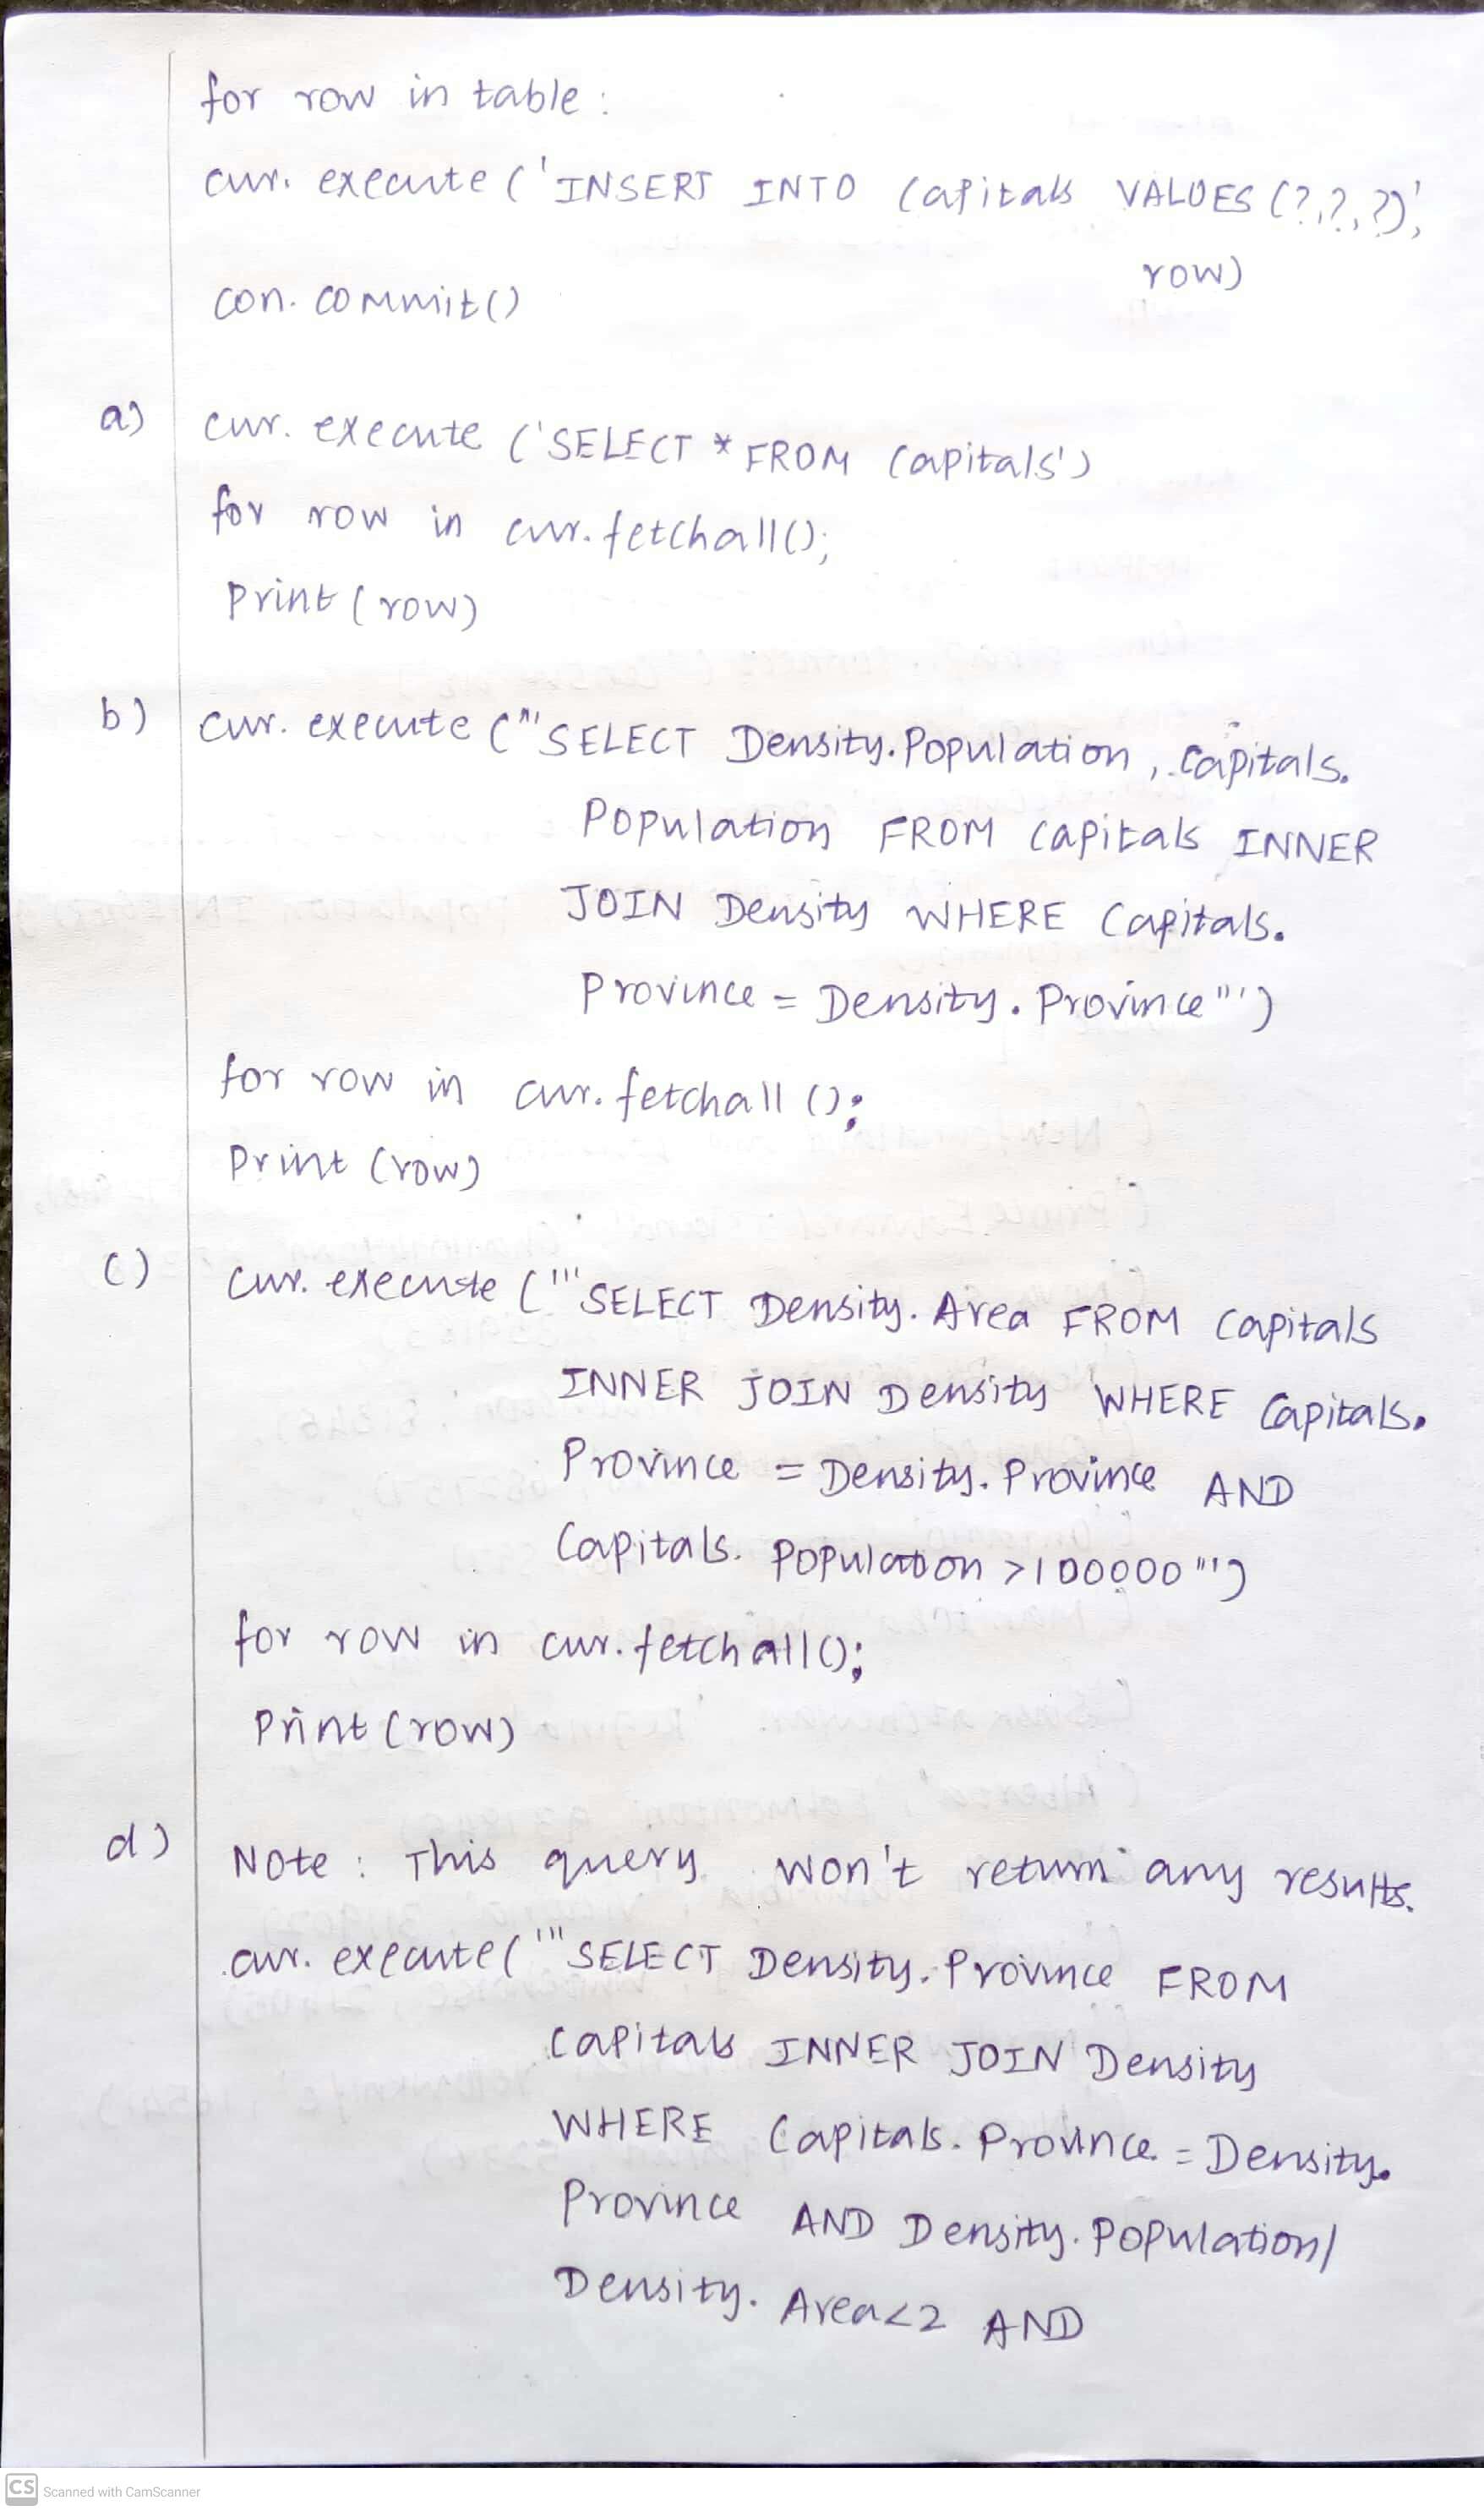 for row in table :
cur. execute ('INSERT INTO Capitals VALUES (?,?,?)',
row)
con. commit()
a) cur. execute ('SELECT * FROM Capitals')
for row in cur. fetchall();
Print (row)
b) cur. execute ("'SELECT Density. Population, Capitals.
Population FROM Capitals INNER
JOIN Density WHERE Capitals.
Province = Density. Province "')
for row in cur. fetchall ();
Print (row)
c) cur. execute ('''SELECT Density. Area FROM Capitals
INNER JOIN Density WHERE Capitals.
Province = Density. Province AND
Capitals. Population >100000 "')
for row in cur. fetchall();
Print (row)
d) Note : This query won't return any results.
cur. execute( '''SELECT Density. Province FROM
Capitals INNER JOIN Density
WHERE Capitals. Province = Density.
Province AND Density. Population/
Density. Area<2 AND
CS Scanned with CamScanner